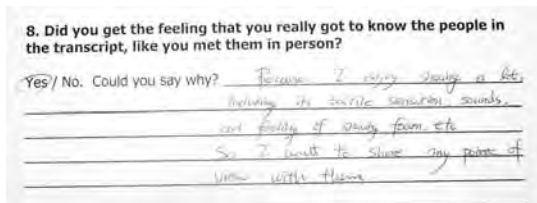 8. Did you get the feeling that you really got to know the people in
the transcript, like you met them in person?
Yes / No. Could you say why? Because I enjoy a lot,
Including its tactile sensation, sounds,
and feeling of foam, etc
So I want to share my points of
view with them